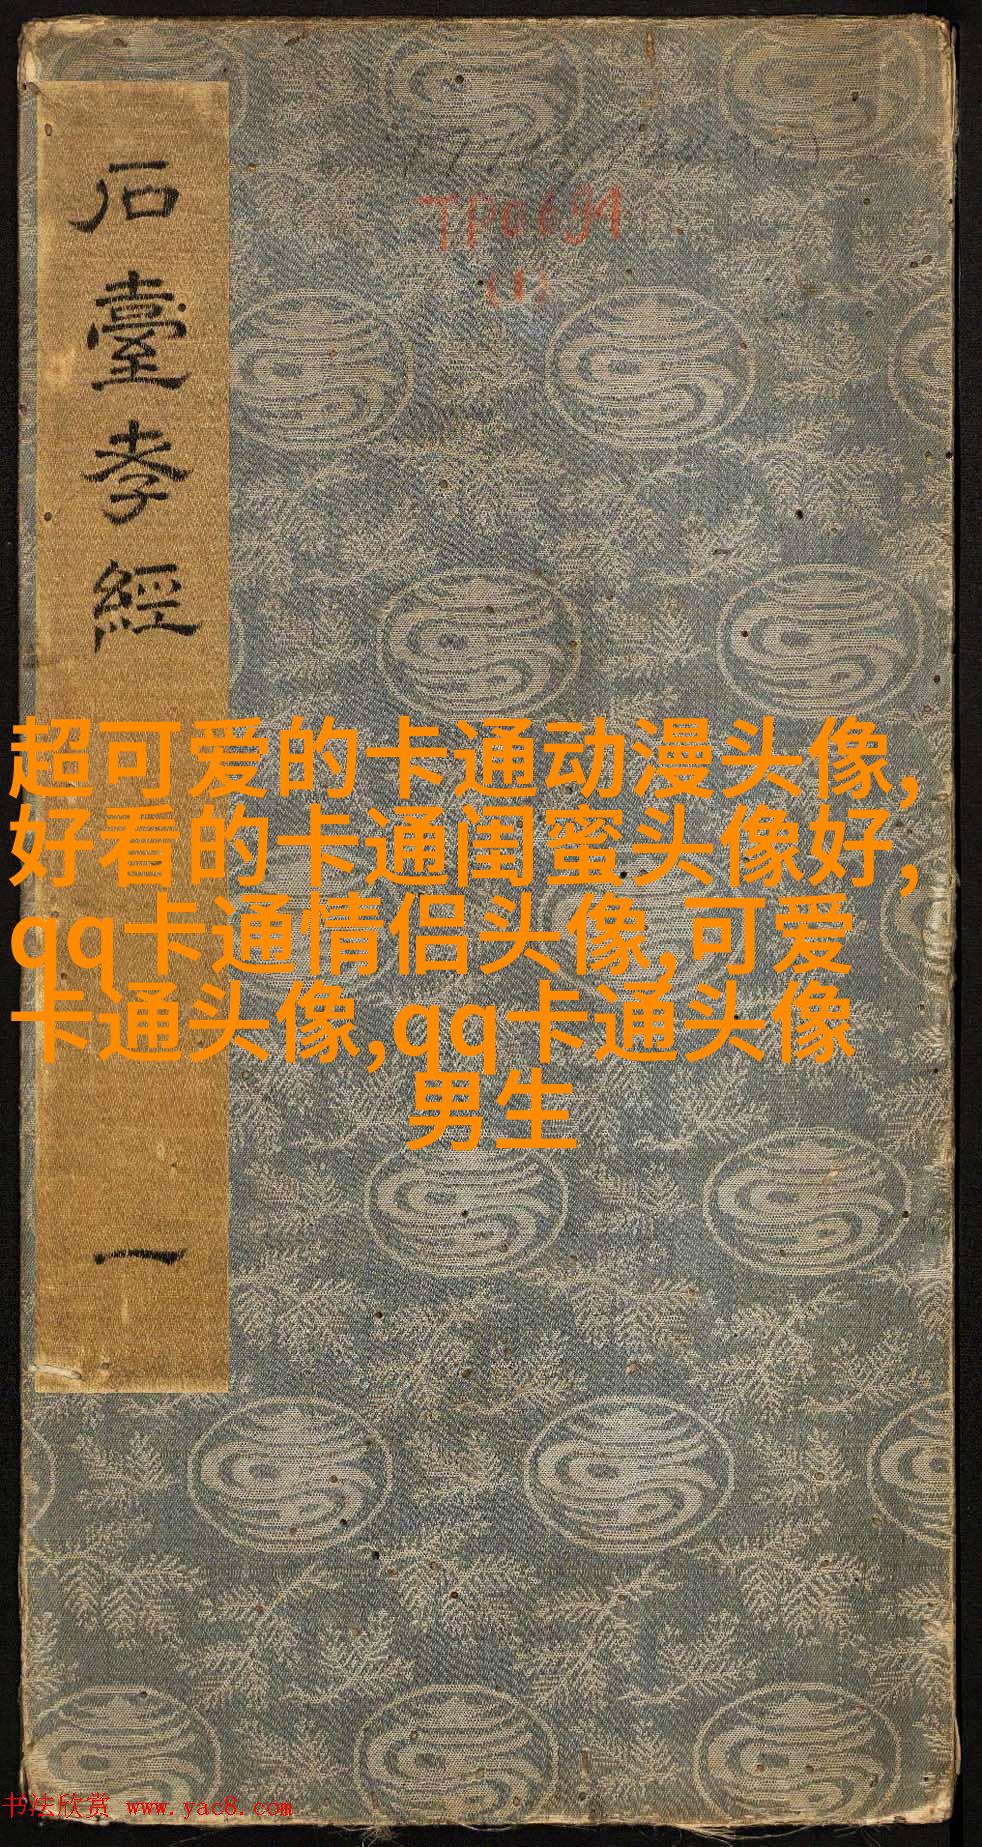 石臺孝經
一
TP0691
(1)
超可爱的卡通动漫头像,
好看的卡通闺蜜头像好,
qq卡通情侣头像,可爱
卡通头像,qq卡通头像
男生
书法欣赏 www.yac8.com